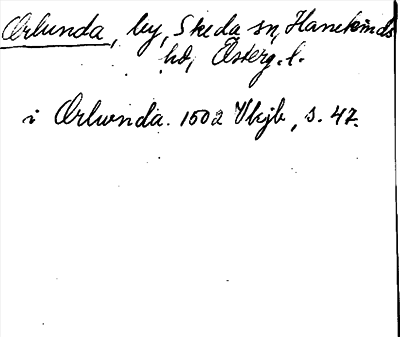 Ørlunda, by, Skeda sn, Hanekinds
hd, Österg. l.
i Ørlwnda. 1502 Vkjb, s. 47.